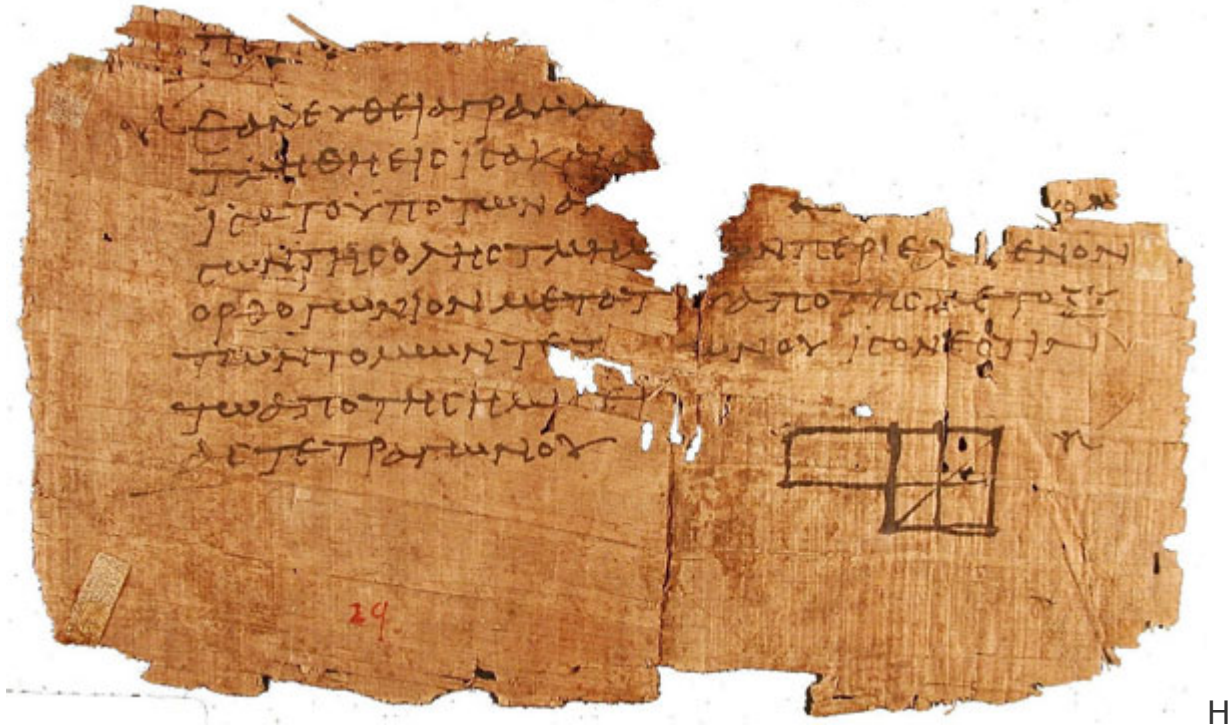 ΕΑΝ ΕΥΘΕΙΑ
ΤΜΗΘΗ ΕΙϹ ΙϹΑ ΚΑΙ
ΙϹΑ ΤΟ ΥΠΟ ΤΩΝ
ϹΩΝ ΤΗϹ ΟΛΗϹ ΠΕΡΙΕΧ ΕΝΟΝ
ΟΡΘΟΓΩΝΙΟΝ ΜΕΤΑ ΤΟΥ ΑΠΟ ΤΗϹ ΜΕΤΟΞΥ
ΤΩΝ ΤΟΜΩΝ ΤΕΤ ΩΝΟΥ ΙϹΟΝ ΕϹΤΙΝ
ΤΩ ΑΠΟ ΤΗϹ ΗΜΙϹΕΙ
ΑϹ ΤΕΤΡΑΓΩΝΟΥ
29
H